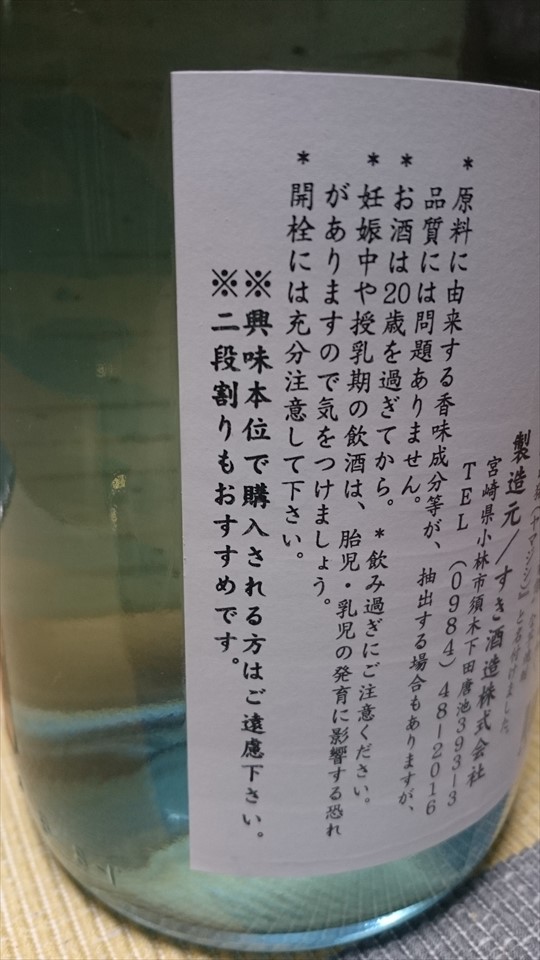 製造元／すき酒造株式会社
宮崎県小林市須木下田唐池393ー3
TEL（0984）48ー2016
＊原料に由来する香味成分等が、抽出する場合もありますが、
品質には問題ありません。
＊お酒は20歳を過ぎてから。＊飲み過ぎにご注意ください。
＊妊娠中や授乳期の飲酒は、胎児・乳児の発育に影響する恐れ
がありますので気をつけましょう。
＊開栓には充分注意して下さい。
※興味本位で購入される方はご遠慮下さい。
※二段割りもおすすめです。